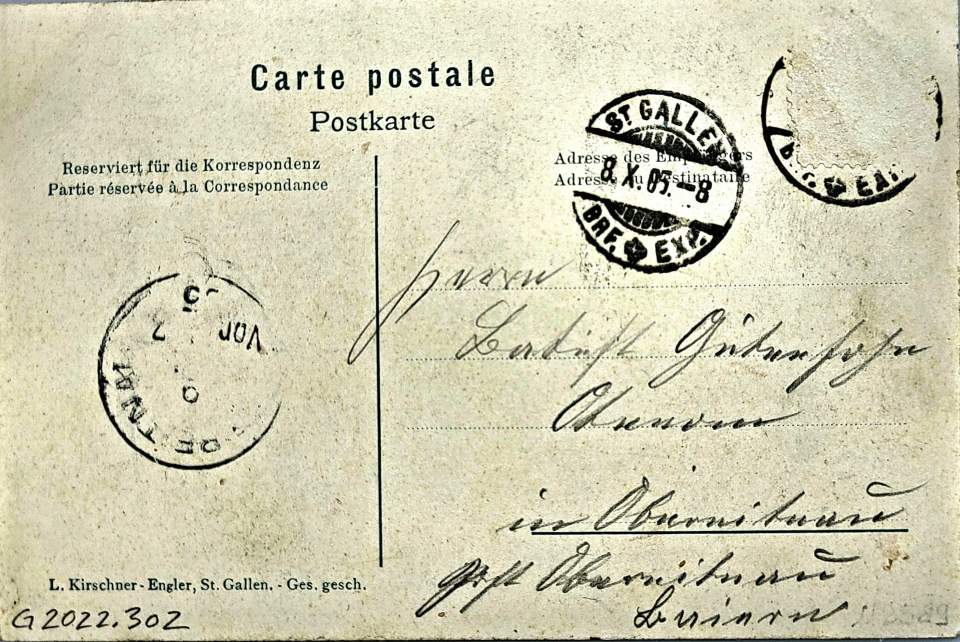 Carte postale
Postkarte
Reserviert für die Korrespondenz
Partie réservée à la Correspondance
Adresse des Empfängers
Adresse du Destinataire
ST GALLEN
8.X.05.-8
BRF. EXP.
BRF. EXP.
Vor
7
9
Herrn
Batist Gutensohn
in Oberreitnau
Post Oberreitnau
Baiern
L. Kirschner-Engler, St. Gallen. - Ges. gesch.
G2022.302